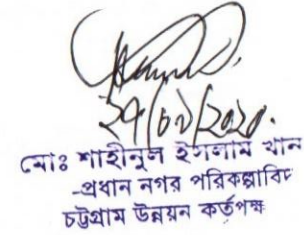 ২৭/০৮/২০২০.
মোঃ শাহীনুল ইসলাম খান
-প্রধান নগর পরিকল্পাবিদ
চট্টগ্রাম উন্নয়ন কর্তৃপক্ষ